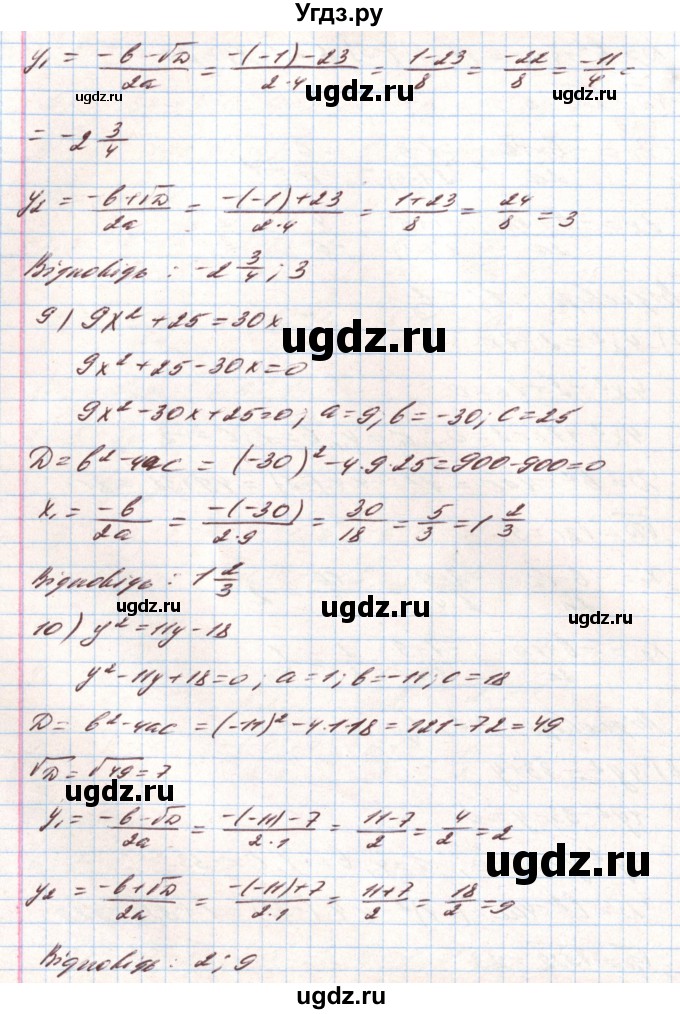 Угдз.ру
y₁ = (-b - √D)/(2a) = (-(-1) - 23)/(2·4) = (1-23)/8 = -22/8 = -11/4 =
ugdz.ru ugdz.ru ugdz.ru
= -2 3/4
y₂ = (-b + √D)/(2a) = (-(-1) + 23)/(2·4) = (1+23)/8 = 24/8 = 3
ugdz.ru
Відповідь: -2 3/4; 3
9) 9x² + 25 = 30x
ugdz.ru
9x² + 25 - 30x = 0
9x² - 30x + 25 = 0; a = 9; b = -30; c = 25
ugdz.ru ugdz.ru
D = b² - 4ac = (-30)² - 4·9·25 = 900 - 900 = 0
x₁ = -b/(2a) = -(-30)/(2·9) = 30/18 = 5/3 = 1 2/3
ugdz.ru
Відповідь: 1 2/3
ugdz.ru
10) y² = 11y - 18
y² - 11y + 18 = 0; a = 1; b = -11; c = 18
ugdz.ru
D = b² - 4ac = (-11)² - 4·1·18 = 121 - 72 = 49
√D = √49 = 7
ugdz.ru
y₁ = (-b - √D)/(2a) = (-(-11) - 7)/(2·1) = (11-7)/2 = 4/2 = 2
ugdz.ru
y₂ = (-b + √D)/(2a) = (-(-11) + 7)/(2·1) = (11+7)/2 = 18/2 = 9
ugdz.ru
Відповідь: 2; 9
ugdz.ru